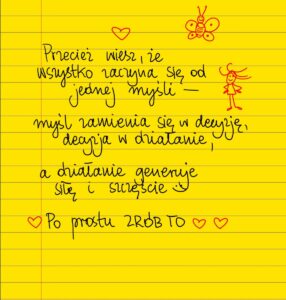 Przecież wiesz, że
wszystko zaczyna się od
jednej myśli —
myśl zamienia się w decyzję,
decyzja w działanie,
a działanie generuje
siłę i szczęście
Po prostu ZRÓB TO